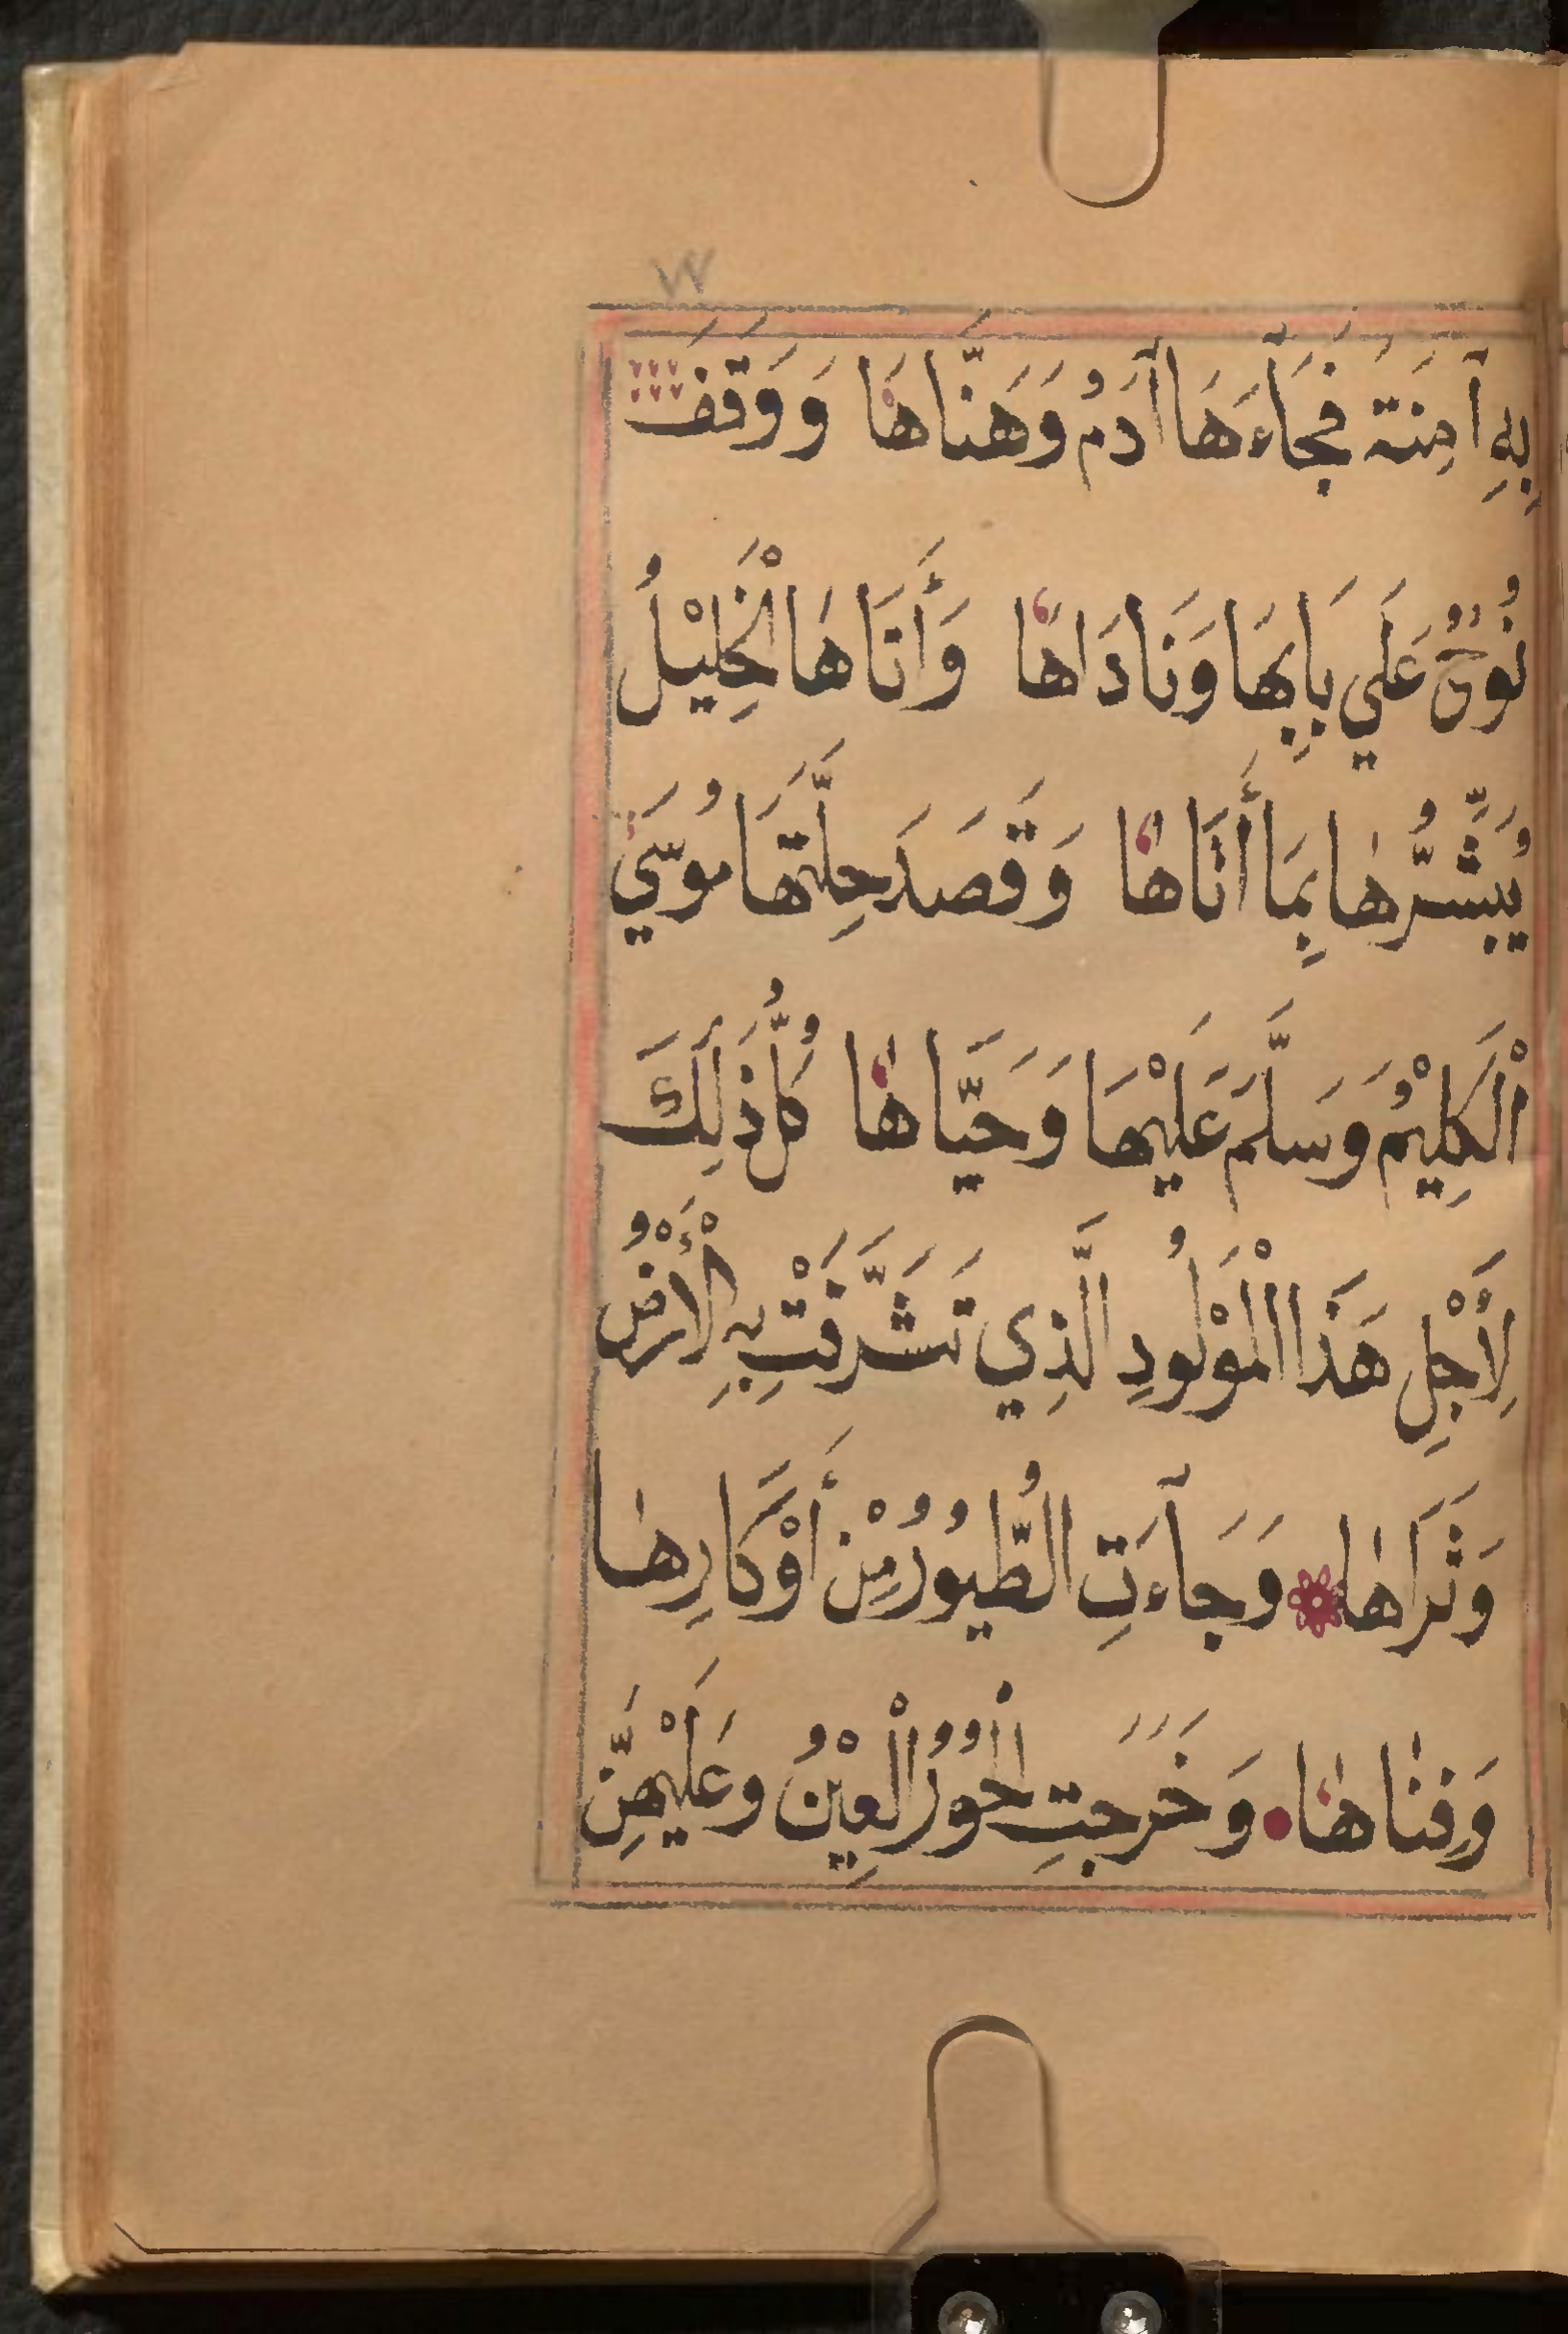 بِهِ آمِنَة فَجَآءَهَا آدَمُ وَهَنَّاهَا وَوَقَفَ
نُوحٌ عَلَي بِابِهَا وَنَادَاهَا وَأَتَاهَا الْخَلِيْلُ
يُبَشِّرُهَا بِمَا أَتَاهَا وَقَصَدَ حِلَّتَهَا مُوسَي
الْكَلِيْمُ وَسَلَّمَ عَلَيْهَا وَحَيَّاهَا كُلُّ ذَلِكَ
لِأَجْلِ هَذَا الْمَوْلُودِ الَّذِي تَشَّرَفَتْ بِهِ الْأَرْضُ
وَثَرَاهَا وَجَآءَتِ الطُّيُورُ مِنْ أَوْكَارِهَا
وَفِنَاهَا وَخَرَجَتِ الحُورُ الْعِيْنُ وَعَلَيْهِنَّ